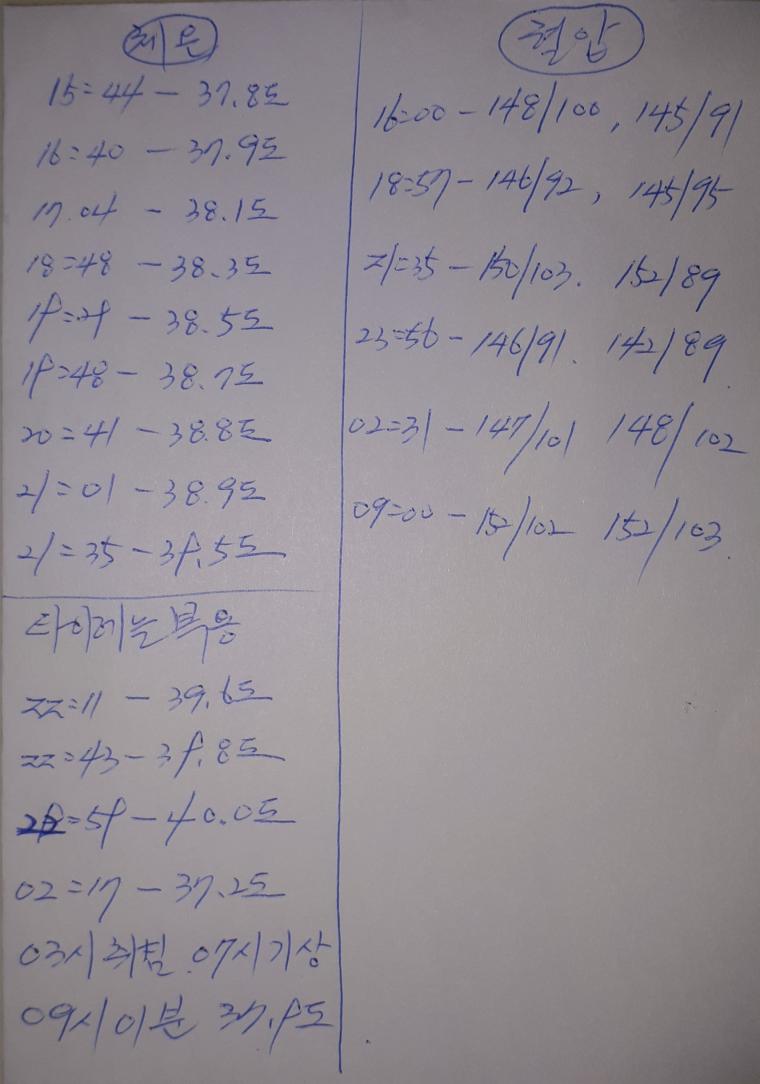 체온
15=44 - 37.8도
16=40 - 37.9도
17.04 - 38.1도
18=48 - 38.3도
19=29 - 38.5도
19=48 - 38.7도
20=41 - 38.8도
21=01 - 38.9도
21=35 - 39.5도
타이레놀복용
22=11 - 39.6도
22=43 - 39.8도
=59 - 40.0도
02=17 - 37.2도
03시취침 07시기상
09시이분 37.9도
혈압
16=00 - 148/100, 145/91
18=57 - 146/92, 145/95
21=35 - 150/103. 152/89
23=56 - 146/91. 142/89
02=31 - 147/101 148/102
09=00 - 152/102 152/103